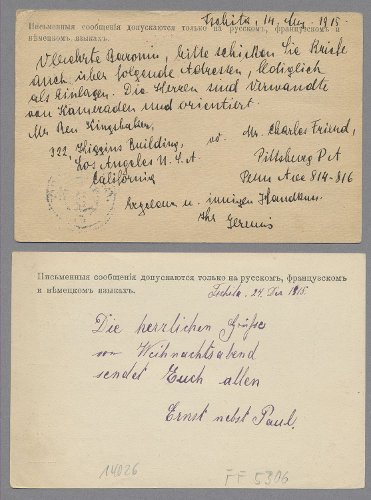 Tschita, 14. Aug. 1915.
Письменныя сообщенія допускаются только на русскомъ, французскомъ и
нѣмецкомъ языкахъ.
Verehrte Baronin, bitte schicken Sie Briefe
auch über folgende Adressen, lediglich
als Einlagen. Die Herren sind Verwandte
von Kameraden und orientiert.
Mr Ben
322, Higgins Building,
Los Angeles U.S.A.
California
Mr. Charles Friend,
Pittsburg PA
Penn Ave 814-816
u. innigen
Ihr
Письменныя сообщенія допускаются только на русскомъ, французскомъ
и нѣмецкомъ языкахъ.
24. Dez 1915.
Die herzlichen Grüsse
vom Weihnachtsabend
sendet Euch allen
Ernst nebst Paul.
14026
FF 5306